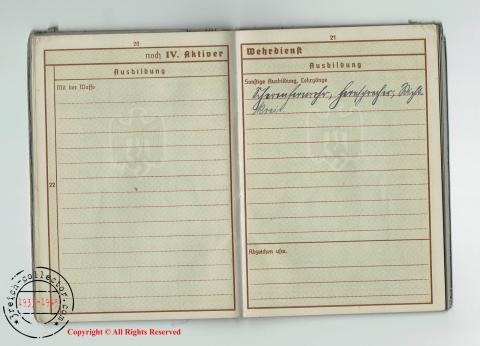 20
noch IV. Aktiver
Ausbildung
Mit der Waffe
22
21
Wehrdienst
Ausbildung
Sonstige Ausbildung, Lehrgänge
Fernsprecher,
Abzeichen usw.
3reich-collector.com
1933-1945
Copyright © All Rights Reserved